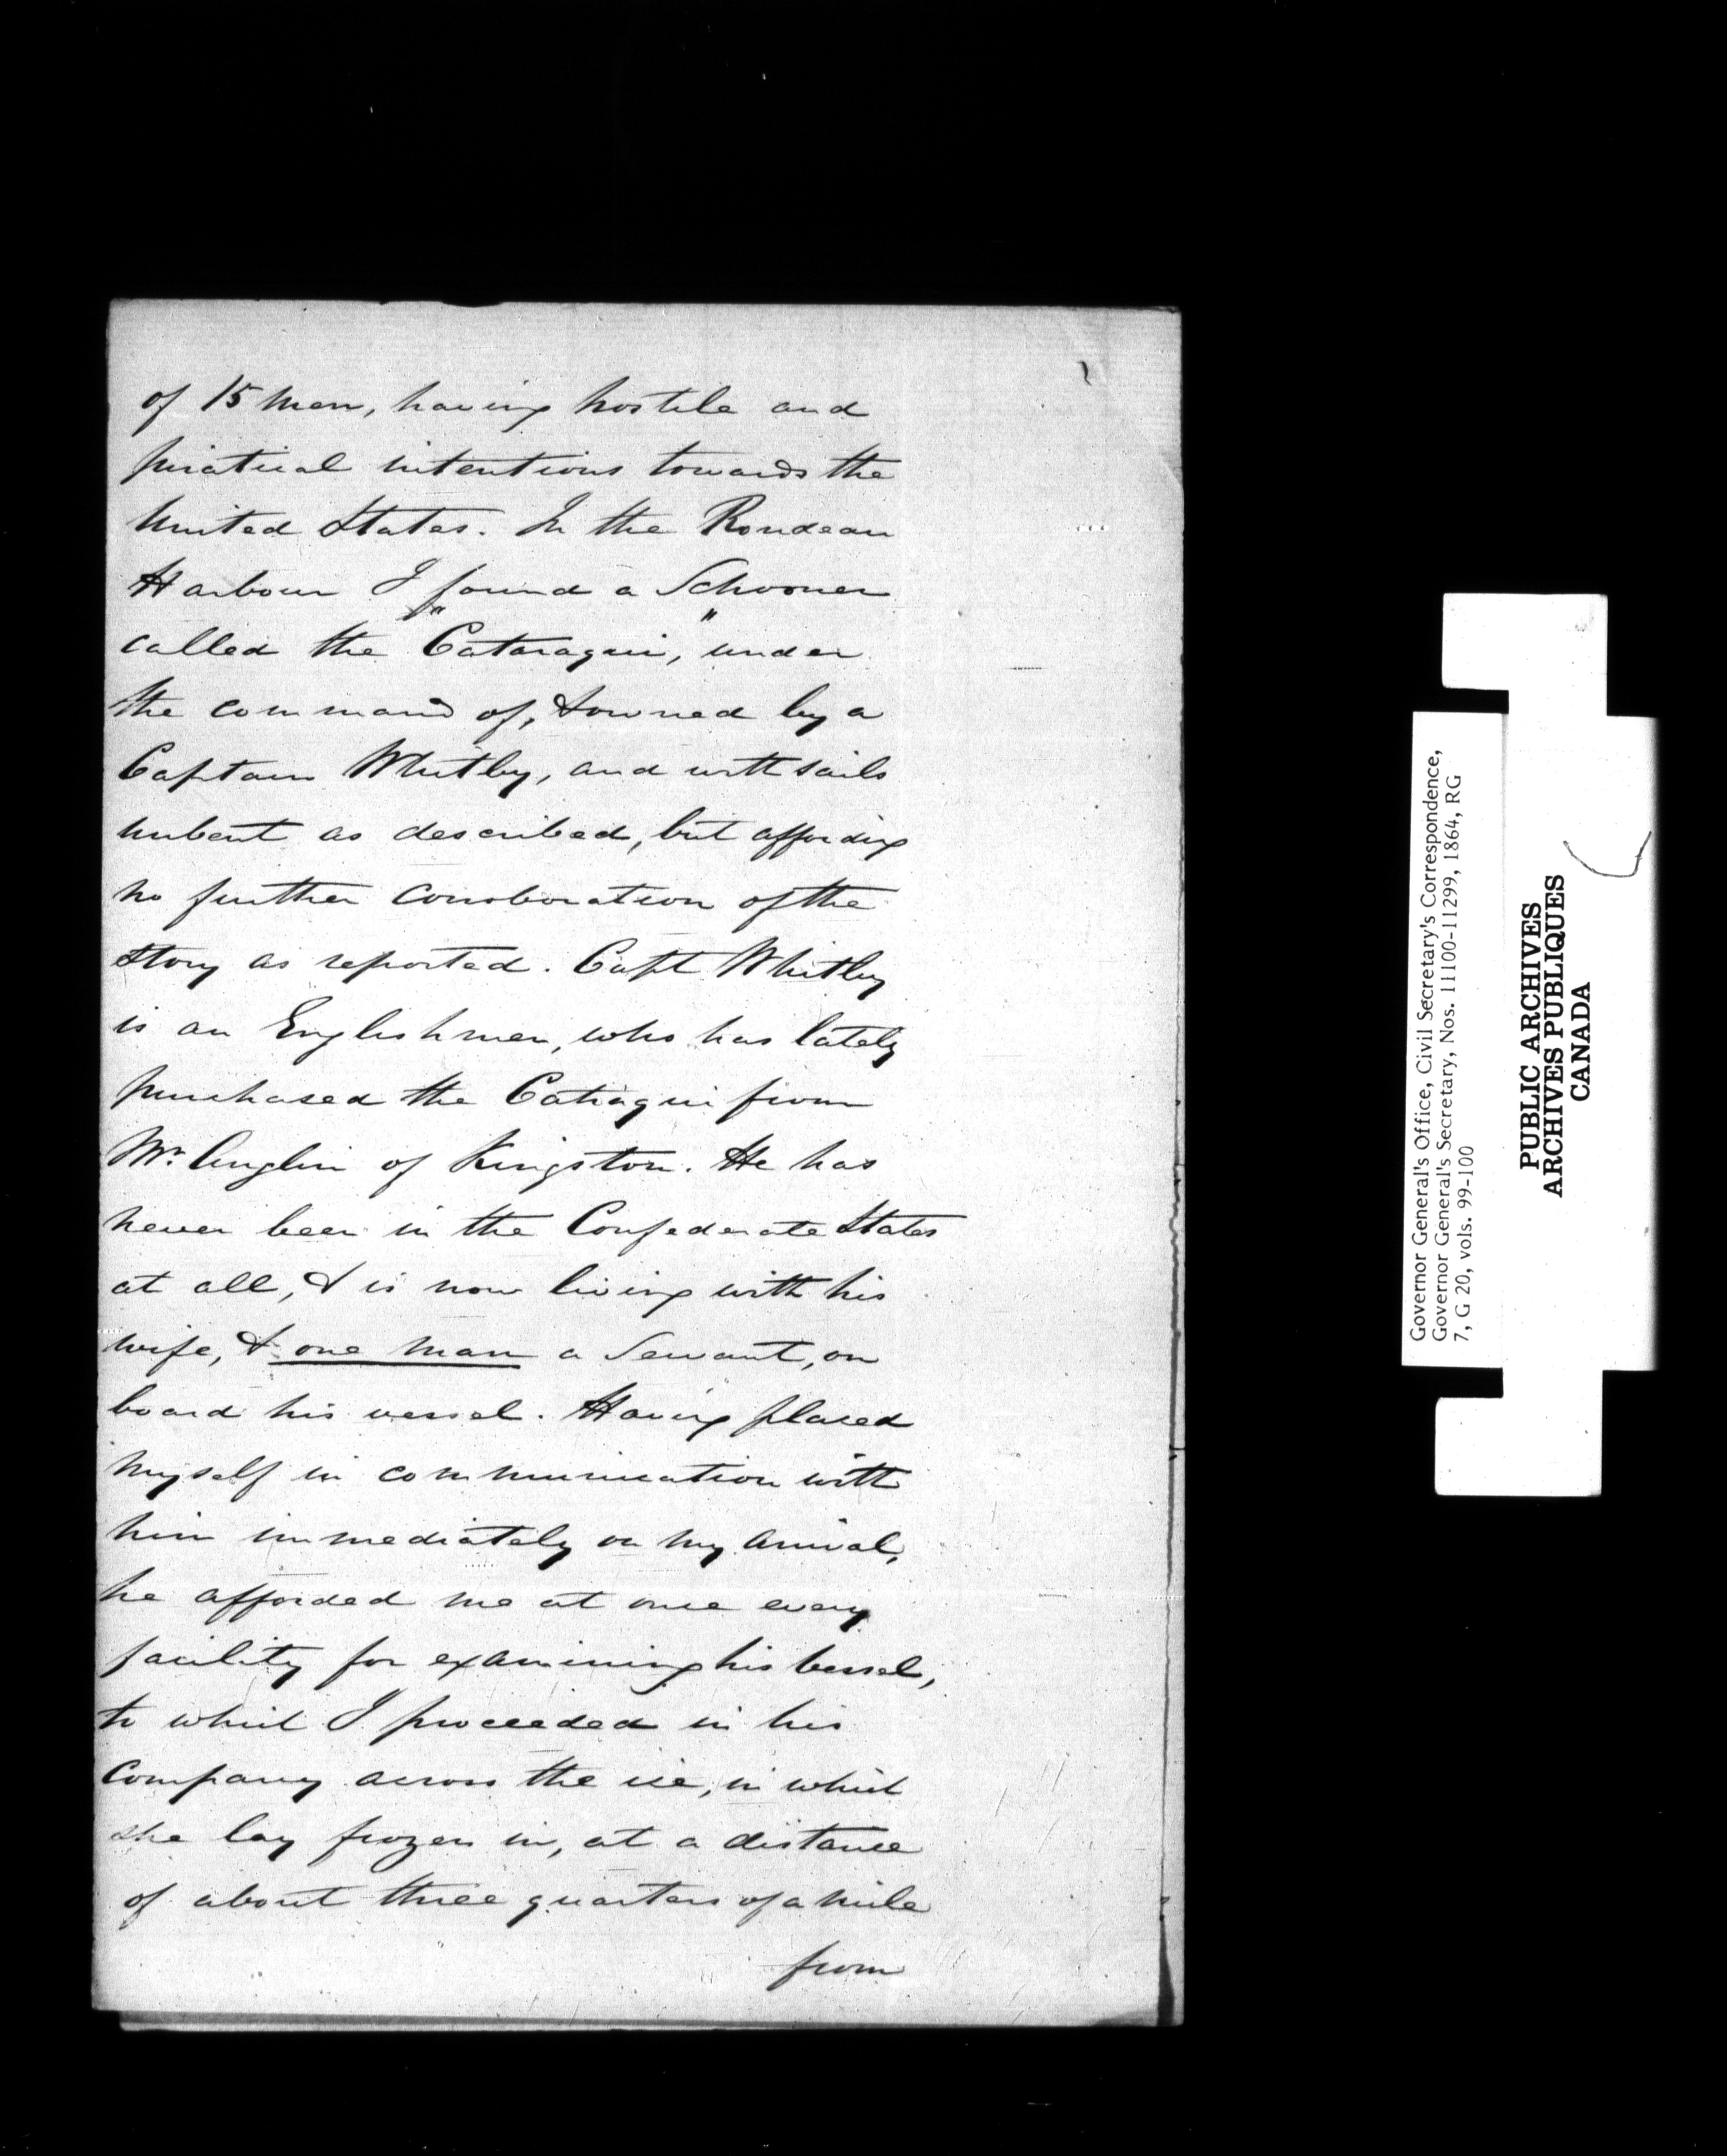 of 15 men, having hostile and
piratical intentions towards the
United States. In the Rondeau
Harbour I found a Schooner
called the "Cataraqui," under
the command of, & owned by a
Captain Whitby, and with sails
unbent as described, but affording
no further corroboration of the
story as reported. Capt Whitby
is an Englishman, who has lately
purchased the Catiaqui from
Mr. Anglin of Kingston. He has
never been in the Confederate States
at all, & is now living with his
wife, & one man a Servant, on
board his vessel. Having placed
myself in communication with
him immediately on my arrival,
he afforded me at once every
facility for examining his vessel,
to which I proceeded in his
Company across the ice, in which
she lay frozen in, at a distance
of about three quarters of a mile
from
Governor General's Office, Civil Secretary's Correspondence,
Governor General's Secretary, Nos. 11100-11299, 1864, RG
7, G 20, vols. 99-100
PUBLIC ARCHIVES
ARCHIVES PUBLIQUES
CANADA